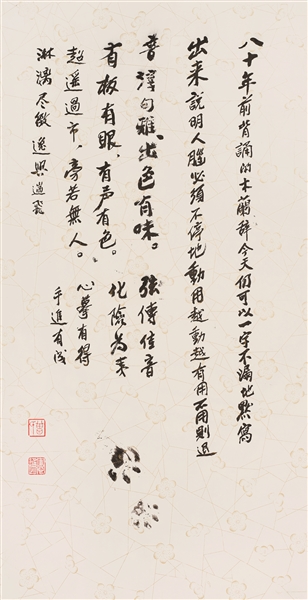 八十年前背誦的木蘭辞今天仍可以一字不漏地默寫
出来説明人腦必須不停地動用越動越有用不用則退
淳句雅,出色有味。 弦傳佳音
有板有眼,有声有色。 化險為夷
遥過市,旁若無人。 心摹有得
淋漓尽致 逸興遄飛 手追有成